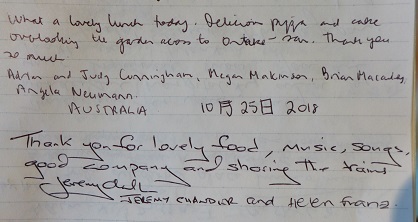 What a lovely lunch today. Delicious pizza and cake
overlooking the garden across to Ontake-san. Thank you
so much
Adrian and Judy Cunningham, Megan Makinson, Brian
Angela Neumann.
AUSTRALIA 10月25日 2018
Thank you for lovely food, music, songs,
good company and sharing the trains
JEREMY and Helen Franz.